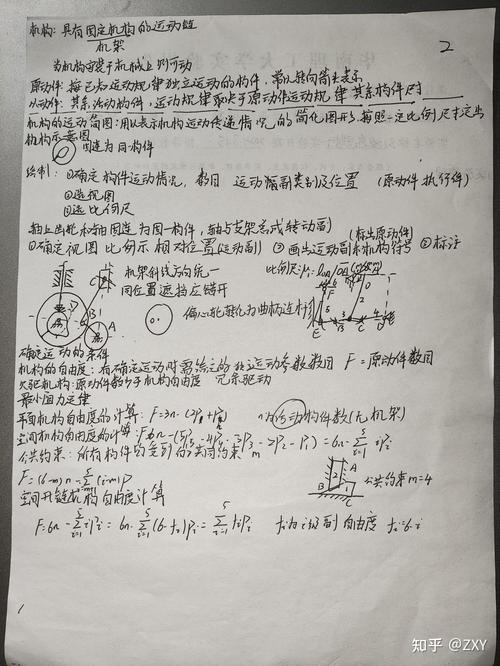 机构：具有固定机构的运动链
机架
2
当机构安装于机械上则可动
原动件：按已知运动规律独立运动的构件，常以转向箭头表示
从动件：其余活动构件，运动规律取决于原动件运动规律 其余构件
机构的运动简图：用以表示机构运动传递情况的简化图形，按照一定比例尺才定出
机构示意图
固连为同一构件
绘制：①确定构件运动情况，数目 运动副类别及位置 （原动件 执行件）
②选视图
③选比例尺
轴上齿轮和轴固连为同一构件，轴与支架形成转动副
（标出原动件）
①确定视图 比例示 相对位置（运动副） ②画出运动副和机构符号 ③标注
机架斜线方向统一
同位置遮挡在错开
偏心轮转化为曲柄连杆
确定运动的条件
机构的自由度：有确定运动时需给定的独立运动参数数目 F=原动件数目
欠驱机构：原动件数少于机构自由度 冗余驱动
最小阻力定律
平面机构自由度的计算：F=3n-(2Pl+Ph) n为活动构件数（无机架）
空间机构自由度的计算：F=6n-(5P5-4P4-3P3-2P2-P1)=6n-∑iPi
公共约束：所有构件均受到的共同约束 m
公共约束m=4
F=(6-m)n-∑(i-m)Pi
空间开链机构自由度计算
F=6n-∑iPi=6n-∑(6-fi)Pi=∑fiPi fi为i级副自由度 fi=6-i
知乎 @ZXY